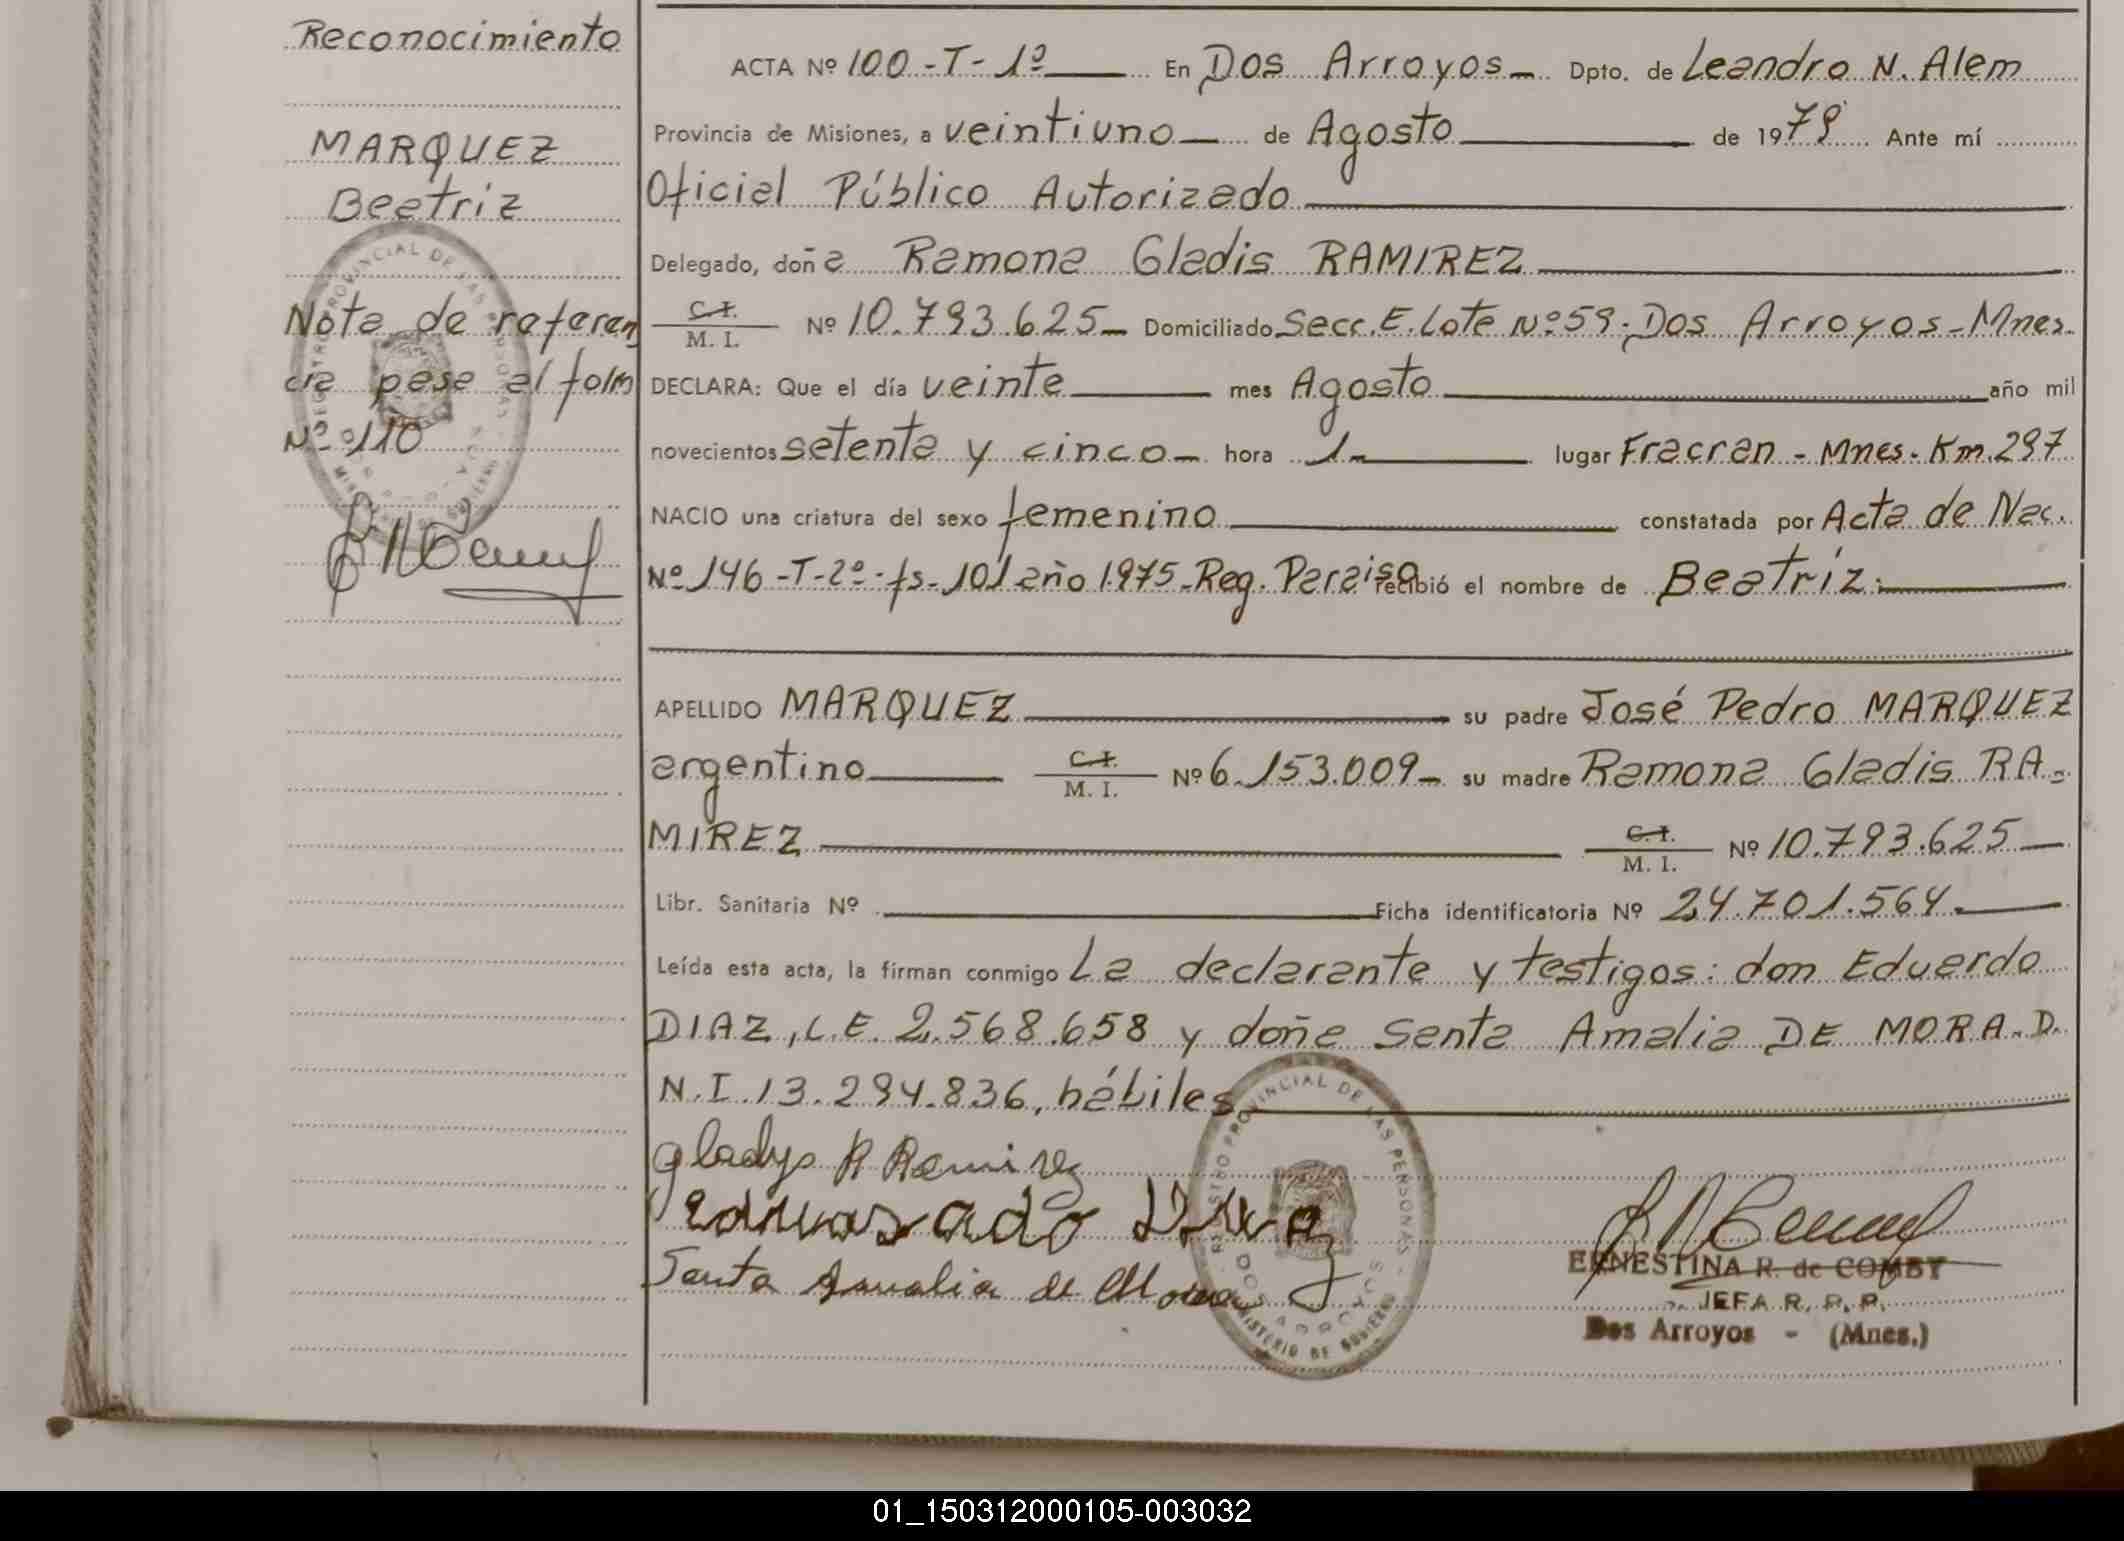 Reconocimiento
MARQUEZ
Beatriz
Nota de referen
cia pasa al folio
Nº 110
ACTA Nº 100-T-1º En Dos Arroyos Dpto. de Leandro N. Alem
Provincia de Misiones, a veintiuno de Agosto de 1979 Ante mí
Oficial Público Autorizado
Delegado, doña Ramona Gladis RAMIREZ
C.I. M.I. Nº 10.793.625 Domiciliado Secc. E. Lote Nº 59. Dos Arroyos - Mnes.
DECLARA: Que el día veinte mes Agosto año mil
novecientos setenta y cinco hora 1 lugar Fracran - Mnes. Km. 297
NACIO una criatura del sexo femenino constatada por Acta de Nac.
Nº 146-T-2º-fs-101 año 1975-Reg. Paraiso recibió el nombre de Beatriz.
APELLIDO MARQUEZ su padre José Pedro MARQUEZ
argentino C.I. M.I. Nº 6.153.009 su madre Ramona Gladis RA-
MIREZ C.I. M.I. Nº 10.793.625
Libr. Sanitaria Nº Ficha identificatoria Nº 24.701.564.
Leída esta acta, la firman conmigo La declarante y testigos: don Eduardo
DIAZ, L.E. 2.568.658 y doña Santa Amalia DE MORA. D.
N.I. 13.294.836, hábiles
REGISTRO PROVINCIAL DE LAS PERSONAS
DOS ARROYOS
MINISTERIO DE GOBIERNO
Gladys R Ramirez
Eduardo Diaz
Santa Amalia de Mora
ERNESTINA R. de COMBY
JEFA R. P. P.
Dos Arroyos - (Mnes.)
01_150312000105-003032